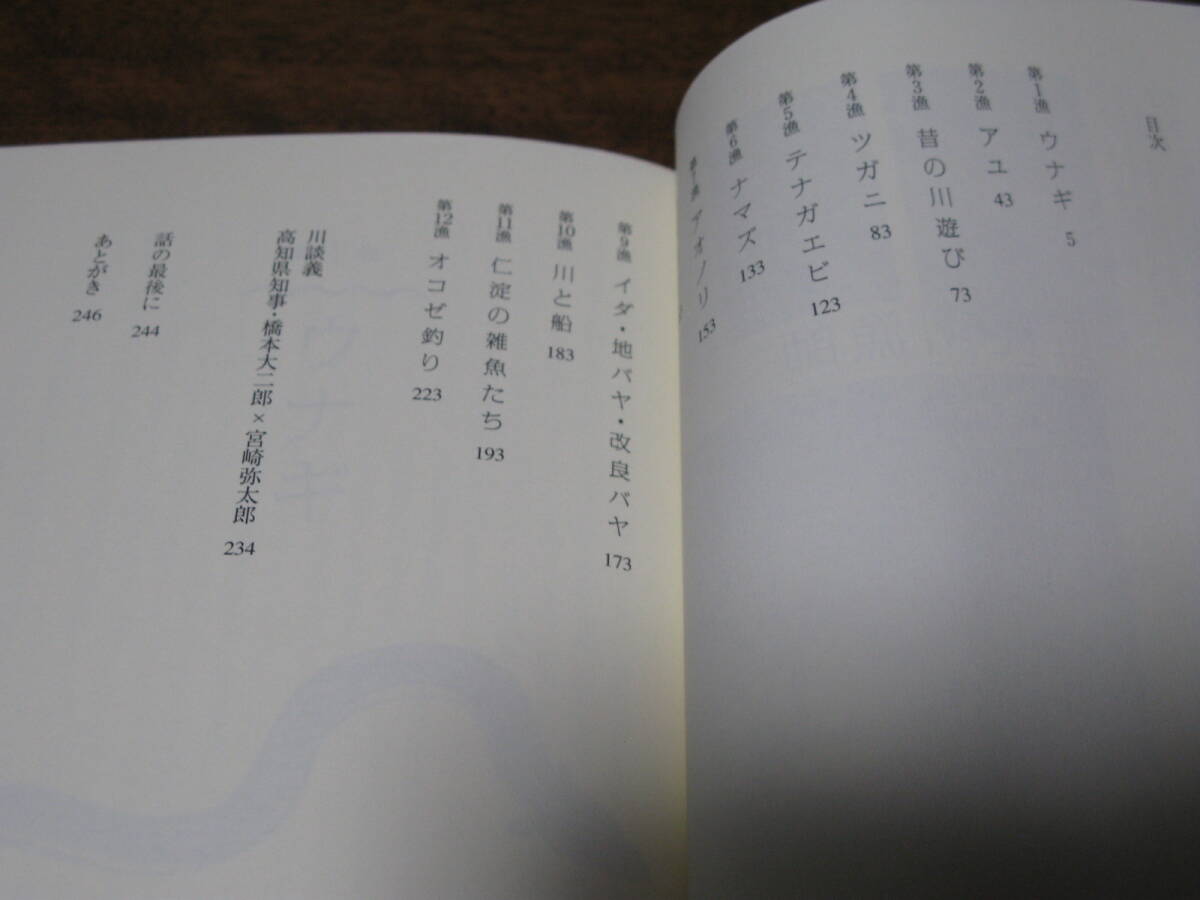 目次
第1漁 ウナギ 5
第2漁 アユ 43
第3漁 昔の川遊び 73
第4漁 ツガニ 83
第5漁 テナガエビ 123
第6漁 ナマズ 133
第7漁 アオノリ 153
第9漁 イダ・地バヤ・改良バヤ 173
第10漁 川と船 183
第11漁 仁淀の雑魚たち 193
第12漁 オコゼ釣り 223
川談義
高知県知事・橋本大二郎×宮崎弥太郎 234
話の最後に 244
あとがき 246